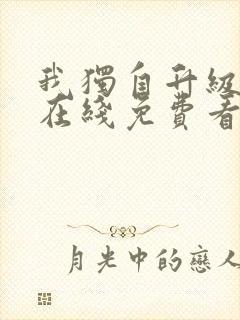 我獨自升級
在綫免費看
月光中的戀人